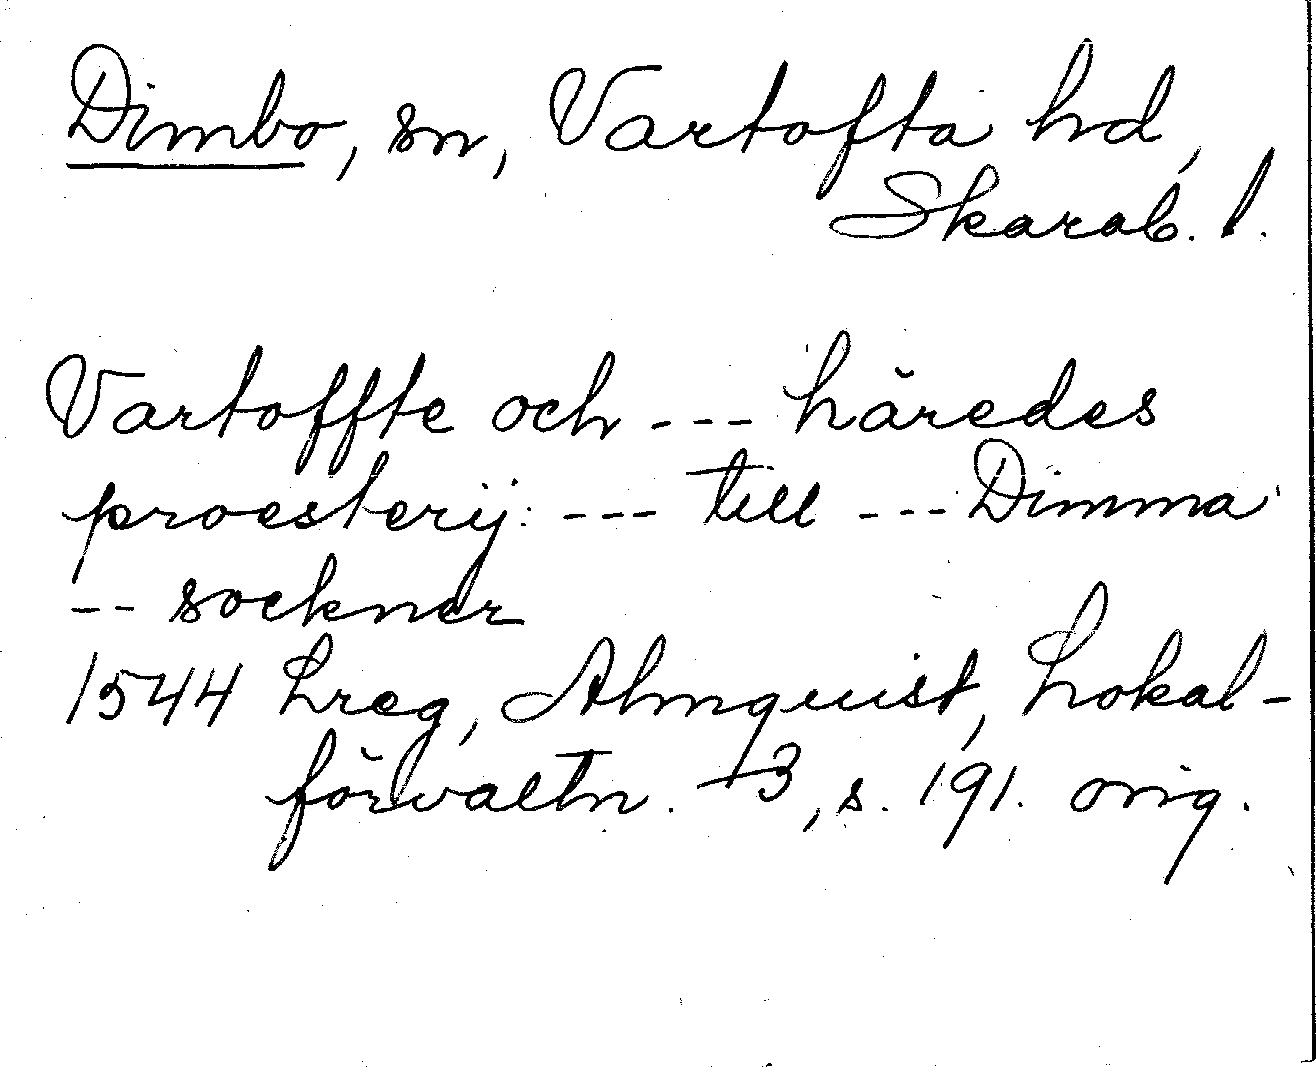 Dimbo, sn, Vartofta hd,
Skarab. l.
Vartoffte och --- häredes
proesterij: --- till --- Dimma
-- sockner
1544 Lreg, Almquist, Lokal-
förvaltn. +3, s. 191. orig.